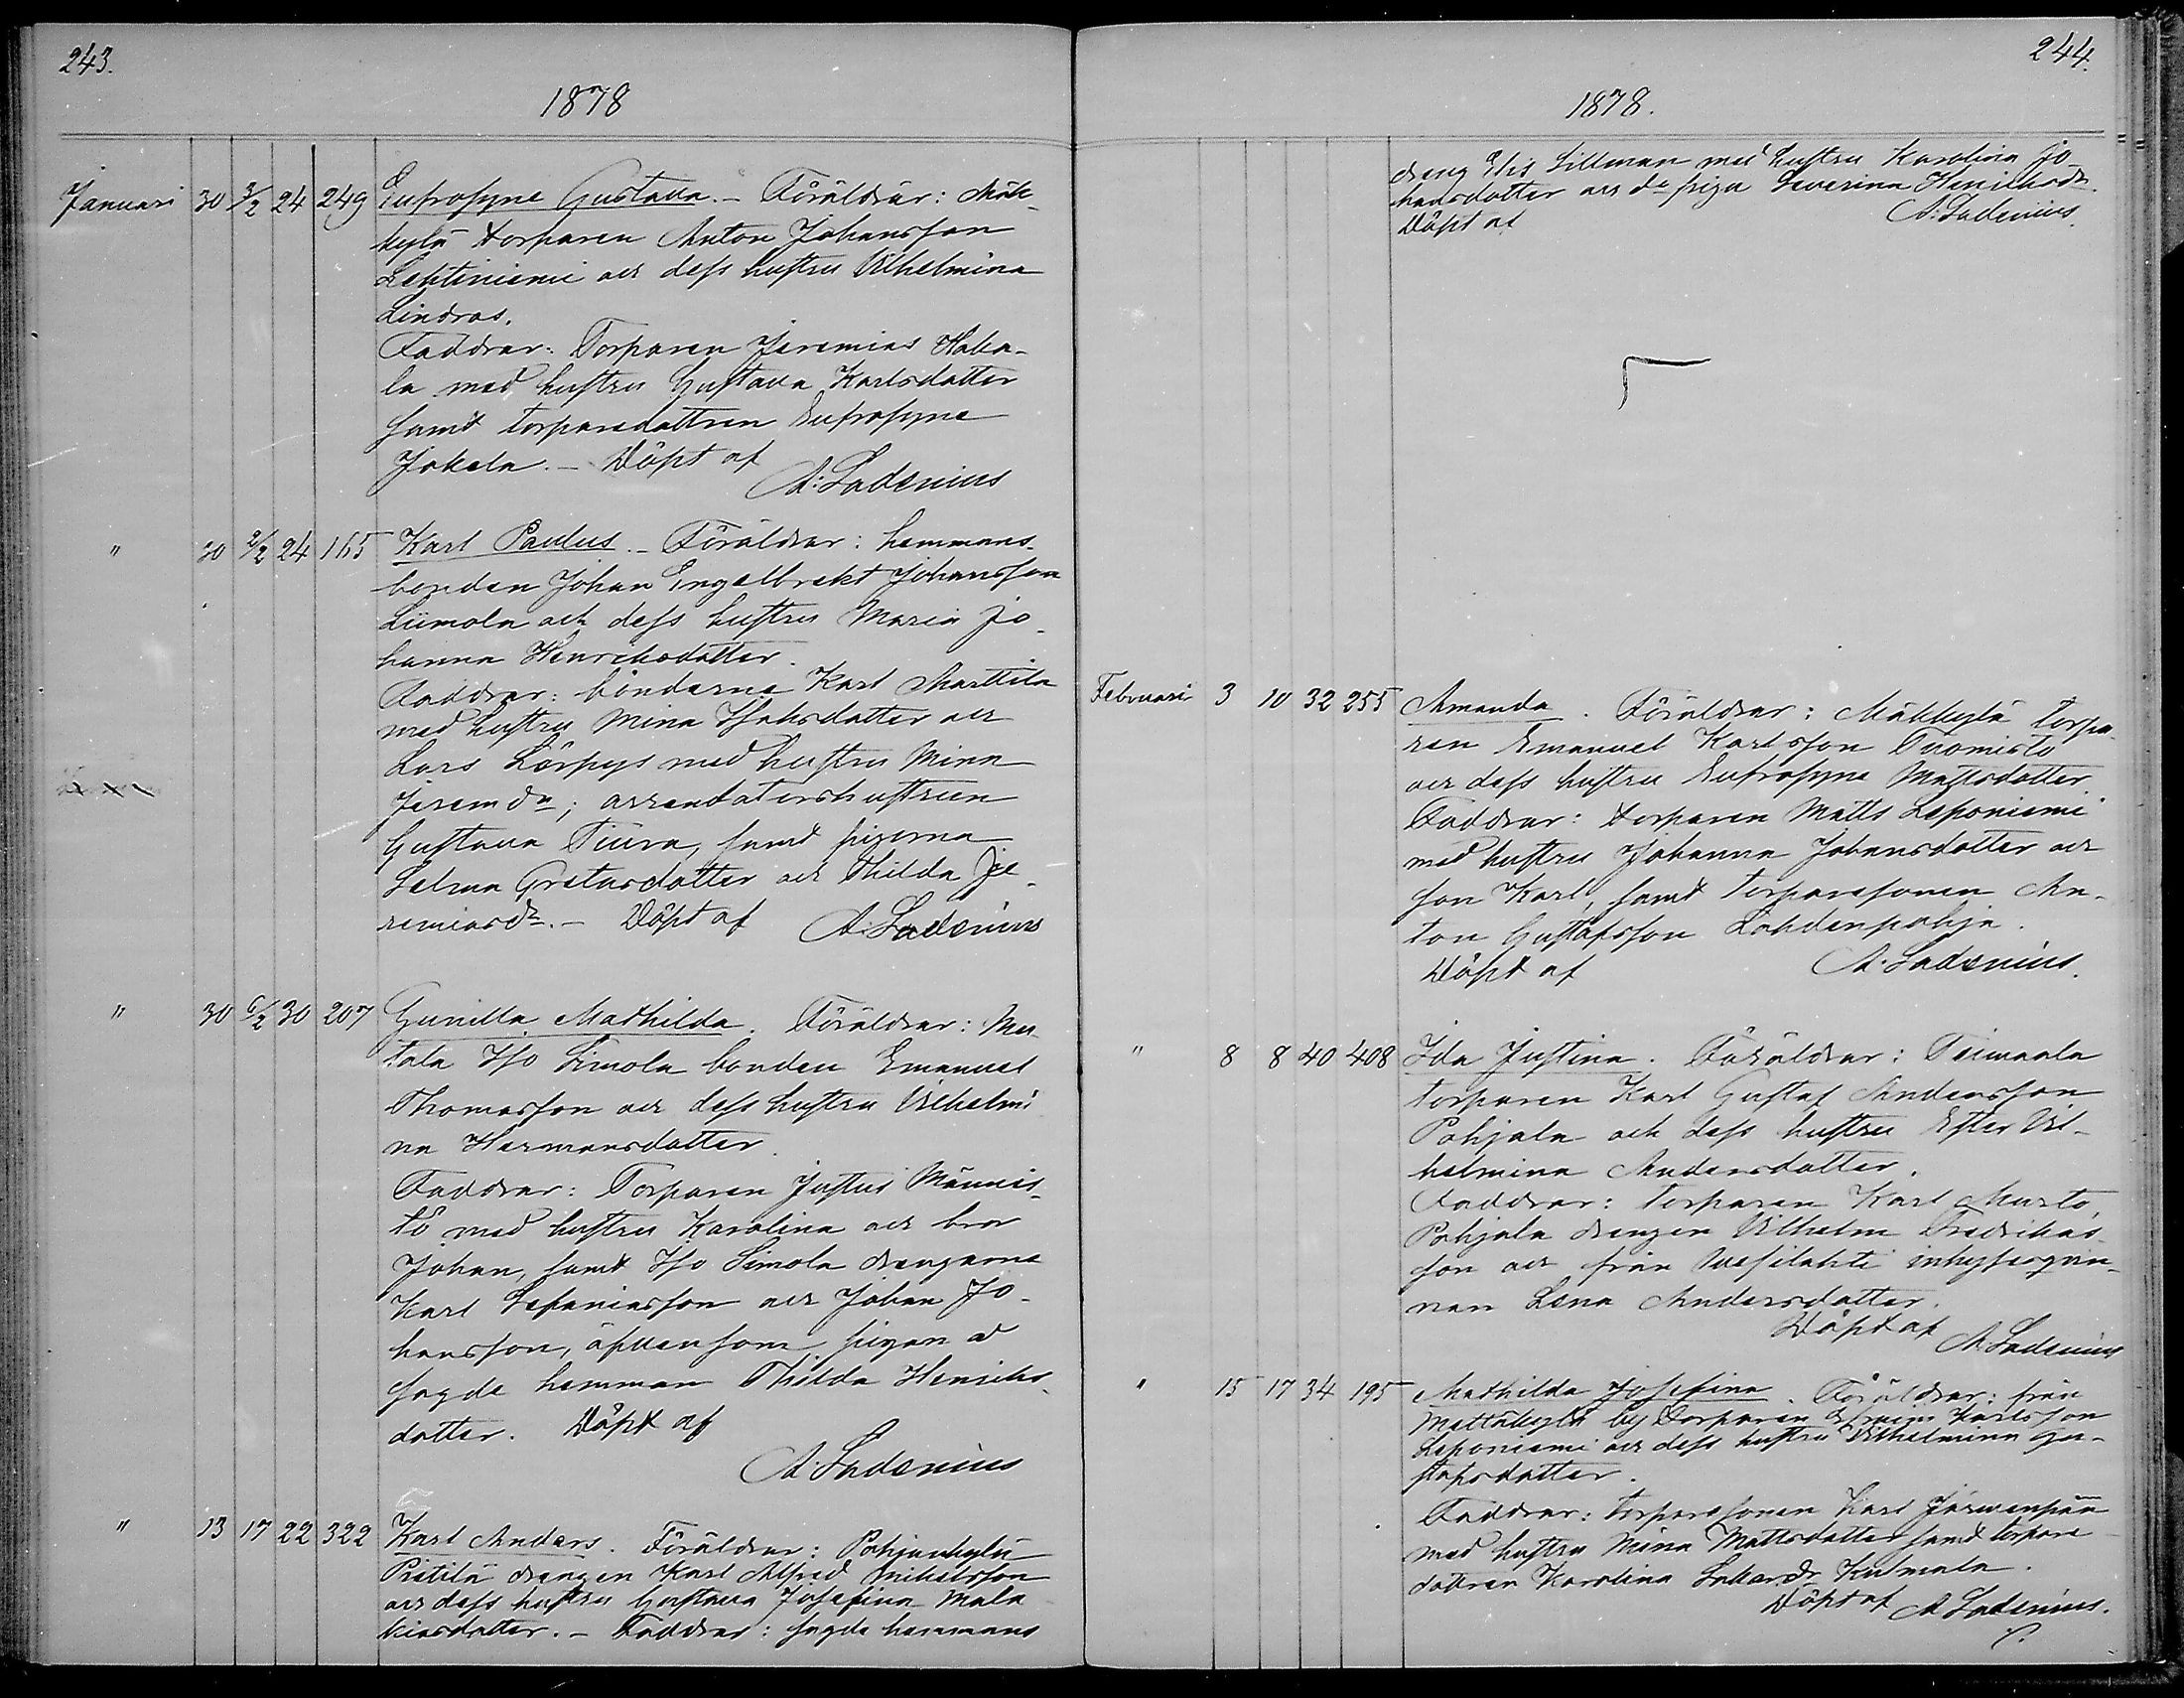 243.
1878
Januari 30 3/2 24 249 Eufrosyne Gustava. – Föräldrar: Mäk-
kylä Torparen Anton Johansson
Lehtiniemi och dess hustru Vilhelmina
Lindros.
Faddrar: Torparen Jeremias Haka-
la med hustru Gustava Karlsdotter
samt torparedottren Eufrosyne
Jokela. – Döpt af
A: Ladenius
" 30 2/2 24 165 Karl Paulus. – Föräldrar: hemmans-
bonden Johan Engelbrekt Johansson
Liimola och dess hustru Maria Jo-
hanna Henriksdotter.
Faddrar: bönderne Karl Marttila
med hustru Mina Isaksdotter och
Lars Lörpys med hustru Mina
Jeremdr; arrendatorshustrun
Gustava Tiura, samt pigorna
Selma Gretasdotter och Thilda Je-
remiasdr. – Döpt af A: Ladenius
" 30 6/2 30 207 Gunilla Mathilda. Föräldrar:
Iso Simola bonden Emanuel
Thomasson och dess hustru Vilhelmi
na Hermansdotter.
Faddrar: Torparen Justus Männis-
tö med hustru Karolina och bror
Johan, samt Iso Simola drengarne
Karl Sefaniasson och Johan Jo-
hansson, äfvensom pigan å
sagde hemman Thilda Henriks-
dotter. Döpt af
A: Ladenius
" 13 17 22 322 Karl Anders. Föräldrar: Pohjankylä
Pietilä drengen Karl Alfred Mikelsson
och dess hustru Gustava Josefina Mala
kiasdotter. – Faddrar: sagde hemmans
244.
1878.
dreng Elis Sillman med hustru Karolina Jo-
hansdotter och do piga Severina Henriksdr.
Döpt af A: Ladenius.
Februari 3 10 32 255 Amanda. Föräldrar: Mäkkylä torpa-
ren Emanuel Karlsson Tuomisto
och dess hustru Eufrosyne Mattsdotter.
Faddrar: Torparen Matts Leponiemi
med hustru Johanna Johansdotter och
son Karl, samt torparesonen An-
ton Gustafsson Lahdenpohja.
Döpt af A: Ladenius.
" 8 8 40 408 Ida Justina. Föräldrar: Teimaala
torparen Karl Gustaf Andersson
Pohjala och dess hustru Ester Vil-
helmina Andersdotter.
Faddrar: torparen Karl Murto,
Pohjala drengen Vilhelm Fredriks-
son och från Wesilahti inhysesqvin-
nan Lena Andersdotter.
Döpt af A: Ladenius
" 15 17 34 195 Mathilda Josefina. Föräldrar: från
by Torparen Efraim Karlsson
Leponiemi och dess hustru Vilhelmina Gu-
stafsdotter.
Faddrar: torparesonen Karl Järwenpää
med hustru Mina Mattsdotter samt torpare
dottren Karolina Kulmala.
Döpt af A Ladenius.